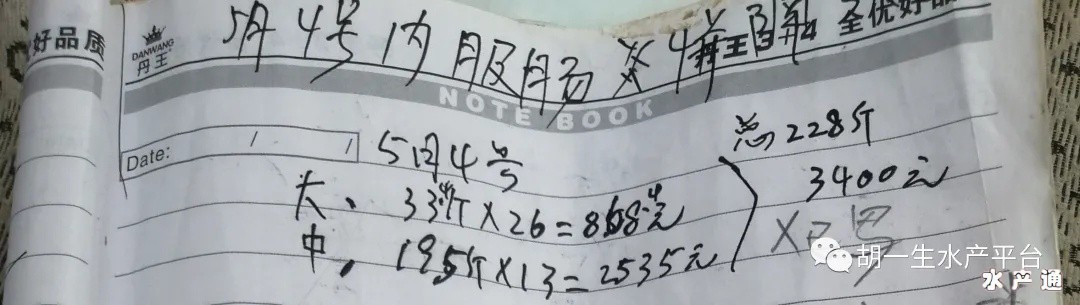 好品质
DANWANG
丹王
5月4号内服肠炎4
丹王 全优好品
NOTE BOOK
Date: / /
5月4号
总228斤
大、33.4斤×26=868.4元
3400元
中、195斤×13=2535元
胡一生水产平台
水产通